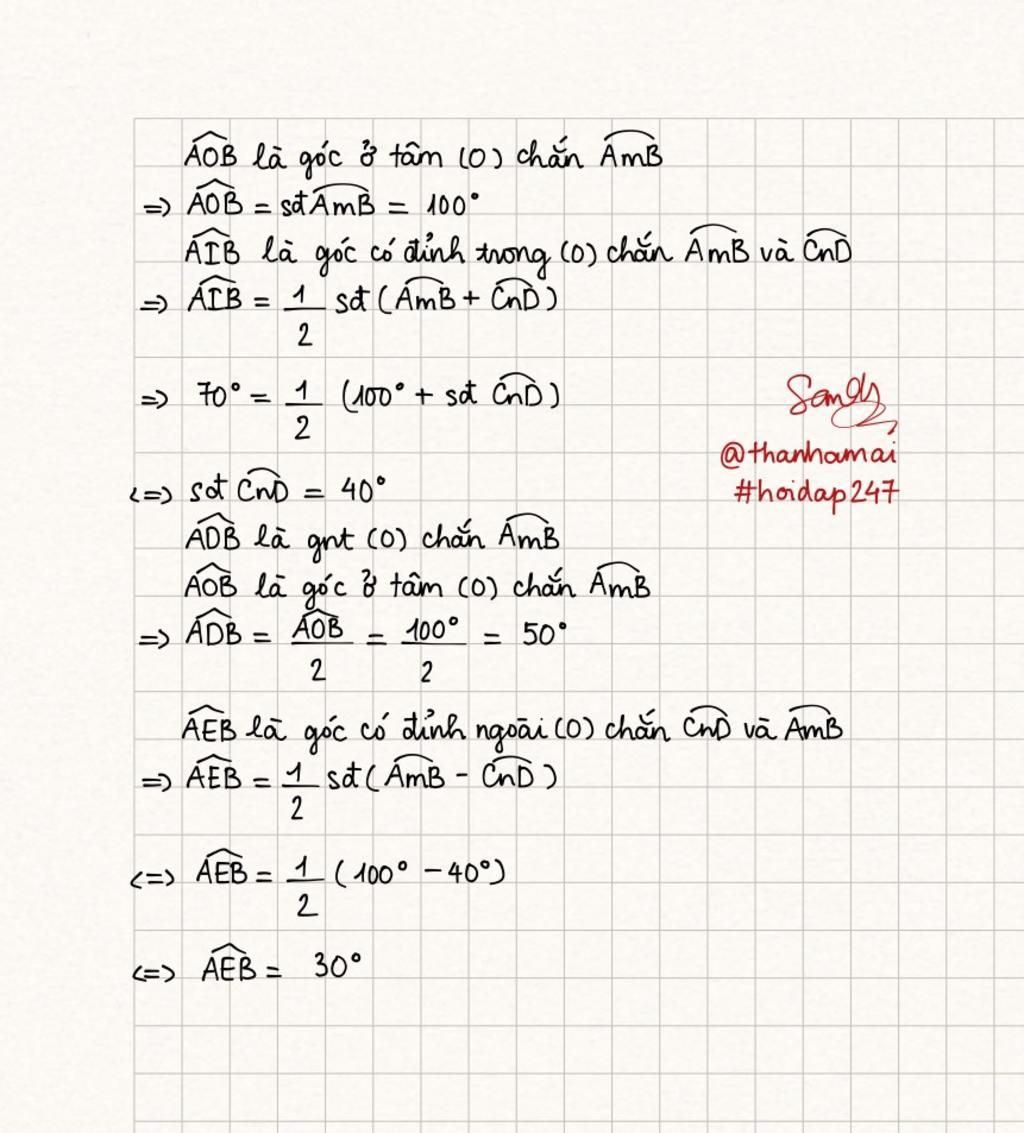 AOB là góc ở tâm (O) chắn AmB
=> AOB = sđ AmB = 100°
AIB là góc có đỉnh trong (O) chắn AmB và CnD
=> AIB = 1/2 sđ (AmB + CnD)
=> 70° = 1/2 (100° + sđ CnD)
Sandy
@thanhamai
<=> sđ CnD = 40°
#hoidap247
ADB là gnt (O) chắn AmB
AOB là góc ở tâm (O) chắn AmB
=> ADB = AOB/2 = 100°/2 = 50°
AEB là góc có đỉnh ngoài (O) chắn CnD và AmB
=> AEB = 1/2 sđ (AmB - CnD)
<=> AEB = 1/2 (100° - 40°)
<=> AEB = 30°